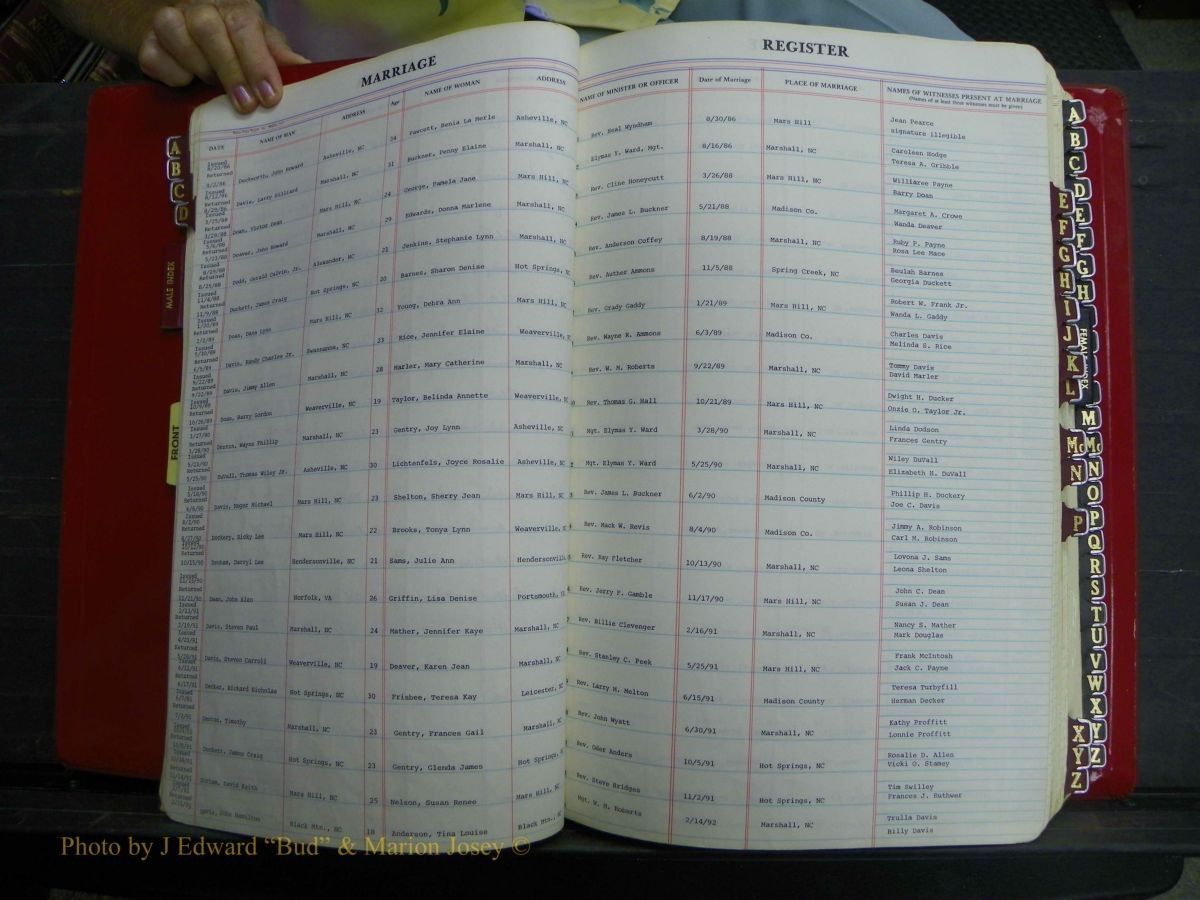 MARRIAGE
REGISTER
DATE NAME OF MAN ADDRESS Age NAME OF WOMAN ADDRESS NAME OF MINISTER OR OFFICER Date of Marriage PLACE OF MARRIAGE NAMES OF WITNESSES PRESENT AT MARRIAGE
(Names of at least three witnesses must be given)
Duckworth, John Edward Asheville, NC 34 Fawcett, Benia La Merle Asheville, NC Rev. Neal Wyndham 8/30/86 Mars Hill Jean Pearce
signature illegible
Davis, Larry Hilliard Marshall, NC 31 Buckner, Penny Elaine Marshall, NC Elymas Y. Ward, Mgt. 8/16/86 Marshall, NC Caroleen Hodge
Teresa A. Gribble
Dean, Victor Dean Mars Hill, NC 24 George, Pamela Jane Mars Hill, NC Rev. Cline Honeycutt 3/26/88 Mars Hill, NC Williaree Payne
Barry Doan
Deaver, John Howard Marshall, NC 29 Edwards, Donna Marlene Marshall, NC Rev. James L. Buckner 5/21/88 Madison Co. Margaret A. Crowe
Wanda Deaver
Dodd, Gerald Calvin, Jr. Alexander, NC 21 Jenkins, Stephanie Lynn Marshall, NC Rev. Anderson Coffey 8/19/88 Marshall, NC Ruby P. Payne
Rosa Lee Mace
Duckett, James Craig Hot Springs, NC 20 Barnes, Sharon Denise Hot Springs, NC Rev. Auther Ammons 11/5/88 Spring Creek, NC Beulah Barnes
Georgia Duckett
Doan, Dana Lynn Mars Hill, NC 32 Young, Debra Ann Mars Hill, NC Rev. Grady Gaddy 1/21/89 Mars Hill, NC Robert W. Frank Jr.
Wanda L. Gaddy
Davis, Randy Charles Jr. Swannanoa, NC 23 Rice, Jennifer Elaine Weaverville, NC Rev. Wayne R. Ammons 6/3/89 Madison Co. Charles Davis
Melinda S. Rice
Davis, Jimmy Allen Marshall, NC 28 Marler, Mary Catherine Marshall, NC Rev. W. M. Roberts 9/22/89 Marshall, NC Tommy Davis
David Marler
Doan, Barry Gordon Weaverville, NC 19 Taylor, Belinda Annette Weaverville, NC Rev. Thomas G. Hall 10/21/89 Mars Hill, NC Dwight H. Ducker
Onzie O. Taylor Jr.
Denton, Wayne Phillip Marshall, NC 23 Gentry, Joy Lynn Asheville, NC Mgt. Elymas Y. Ward 3/28/90 Marshall, NC Linda Dodson
Frances Gentry
DuVall, Thomas Wiley Jr. Asheville, NC 30 Lichtenfels, Joyce Rosalie Asheville, NC Mgt. Elymas Y. Ward 5/25/90 Marshall, NC Wiley DuVall
Elizabeth H. DuVall
Davis, Roger Michael Mars Hill, NC 23 Shelton, Sherry Jean Mars Hill, NC Rev. James L. Buckner 6/2/90 Madison County Phillip H. Dockery
Joe C. Davis
Dockery, Ricky Lee Mars Hill, NC 22 Brooks, Tonya Lynn Weaverville, NC Rev. Mack W. Revis 8/4/90 Madison Co. Jimmy A. Robinson
Carl M. Robinson
Denham, Darryl Lee Hendersonville, NC 21 Sams, Julie Ann Hendersonville Rev. Ray Fletcher 10/13/90 Marshall, NC Lovona J. Sams
Leona Shelton
Dean, John Alan Norfolk, VA 26 Griffin, Lisa Denise Portsmouth, Rev. Jerry F. Gamble 11/17/90 Mars Hill, NC John C. Dean
Susan J. Dean
Davis, Steven Paul Marshall, NC 24 Mather, Jennifer Kaye Marshall, NC Rev. Billie Clevenger 2/16/91 Marshall, NC Nancy S. Mather
Mark Douglas
Davis, Steven Carroll Weaverville, NC 19 Deaver, Karen Jean Marshall, NC Rev. Stanley C. Peek 5/25/91 Mars Hill, NC Frank McIntosh
Jack C. Payne
Decker, Richard Nicholas Hot Springs, NC 30 Frisbee, Teresa Kay Leicester, NC Rev. Larry H. Melton 6/15/91 Madison County Teresa Turbyfill
Herman Decker
Denton, Timothy Marshall, NC 23 Gentry, Frances Gail Marshall, NC Rev. John Wyatt 6/30/91 Marshall, NC Kathy Proffitt
Lonnie Proffitt
Duckett, James Craig Hot Springs, NC 23 Gentry, Glenda James Hot Springs, NC Rev. Oder Anders 10/5/91 Hot Springs, NC Rosalie D. Allen
Vicki O. Stamey
David Keith Mars Hill, NC 25 Nelson, Susan Renee Mars Hill, NC Rev. Steve Bridges 11/2/91 Hot Springs, NC Tim Swilley
Frances J. Ruthwer
Davis, John Hamilton Black Mtn., NC 18 Anderson, Tina Louise Black Mtn., NC Mgt. W. M. Roberts 2/14/92 Marshall, NC Trulla Davis
Billy Davis
A
B
C
D
MALE INDEX
FRONT
E
F
G
H
I
J
K
L
Mc
N
P
XYZ
A
B
C
D
E
F
G
H
FEMALE INDEX
M
Mc
N
O
P
Q
R
S
T
U
V
W
XYZ
Photo by J Edward “Bud” & Marion Josey ©